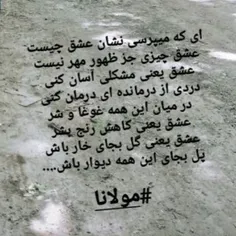 ای که میپرسی نشان عشق چیست
عشق چیزی جز ظهور مهر نیست
عشق یعنی مشکلی آسان کنی
دردی از درمانده ای درمان کنی
در میان این همه غوغا و شر
عشق یعنی کاهش رنج بشر
عشق یعنی گل بجای خار باش
پل بجای این همه دیوار باش....
#مولانا